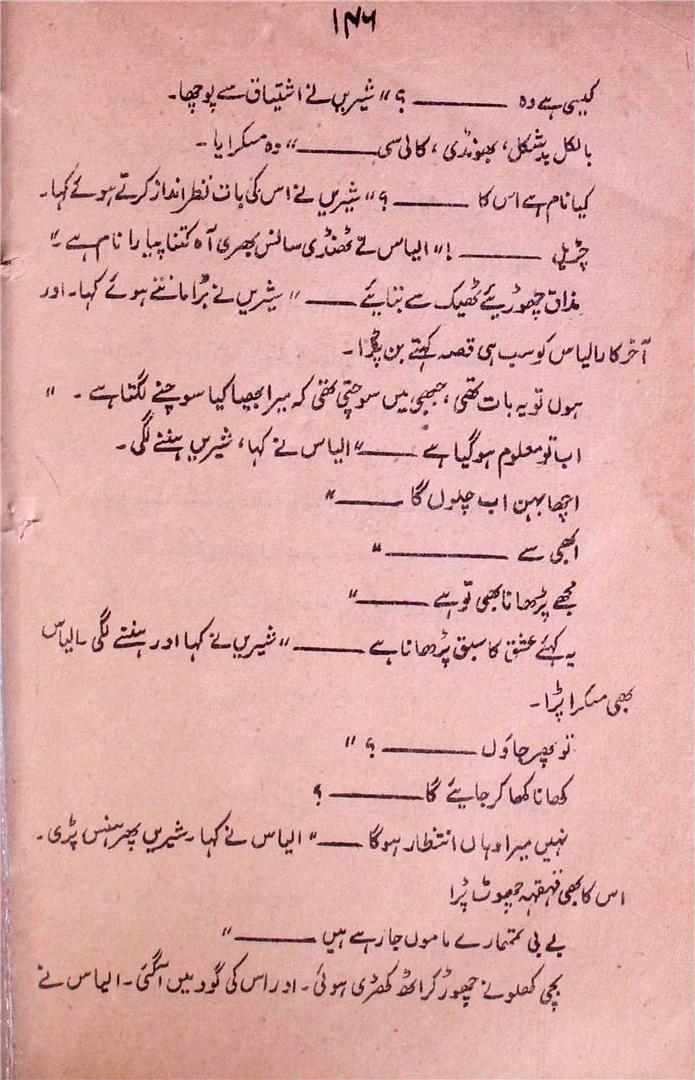 ۱۴۶
کیسی ہے وہ ——— ؟ " شیریں نے اشتیاق سے پوچھا۔
بالکل بدشکل، بھونڈی، کالی سی ——— " وہ مسکرایا۔
کیا نام ہے اس کا ——— ؟ " شیریں نے اس کی بات نظر انداز کرتے ہوئے کہا۔
چڑیل ——— ! " الیاس نے ٹھنڈی سانس بھری آہ کتنا پیارا نام ہے۔"
مذاق چھوڑیئے ٹھیک سے بتایئے ——— " شیریں نے بُرا مانتے ہوئے کہا۔ اور
آخر کار الیاس کو سب ہی قصہ کہتے بن پڑا۔
ہوں تو یہ بات تھی، جبھی میں سوچتی تھی کہ میرا بھیا کیا سوچنے لگتا ہے۔ "
اب تو معلوم ہو گیا ہے ——— " الیاس نے کہا، شیریں ہنسنے لگی۔
اچھا بہن اب چلوں گا ——— "
ابھی سے ——— "
مجھے پڑھانا بھی تو ہے ——— "
یہ کہئے عشق کا سبق پڑھانا ہے ——— " شیریں نے کہا اور ہنسنے لگی۔ الیاس
بھی مسکرا پڑا۔
تو پھر جاؤں ——— ؟ "
کھانا کھا کر جایئے گا ——— ؟
نہیں میرا وہاں انتظار ہوگا ——— " الیاس نے کہا۔ شیریں پھر ہنس پڑی۔
اس کا بھی قہقہہ چھوٹ پڑا
بے بی تمہارے ماموں جا رہے ہیں ——— "
بچی کھلونے چھوڑ کر اٹھ کھڑی ہوئی۔ اور اس کی گود میں آگئی۔ الیاس نے